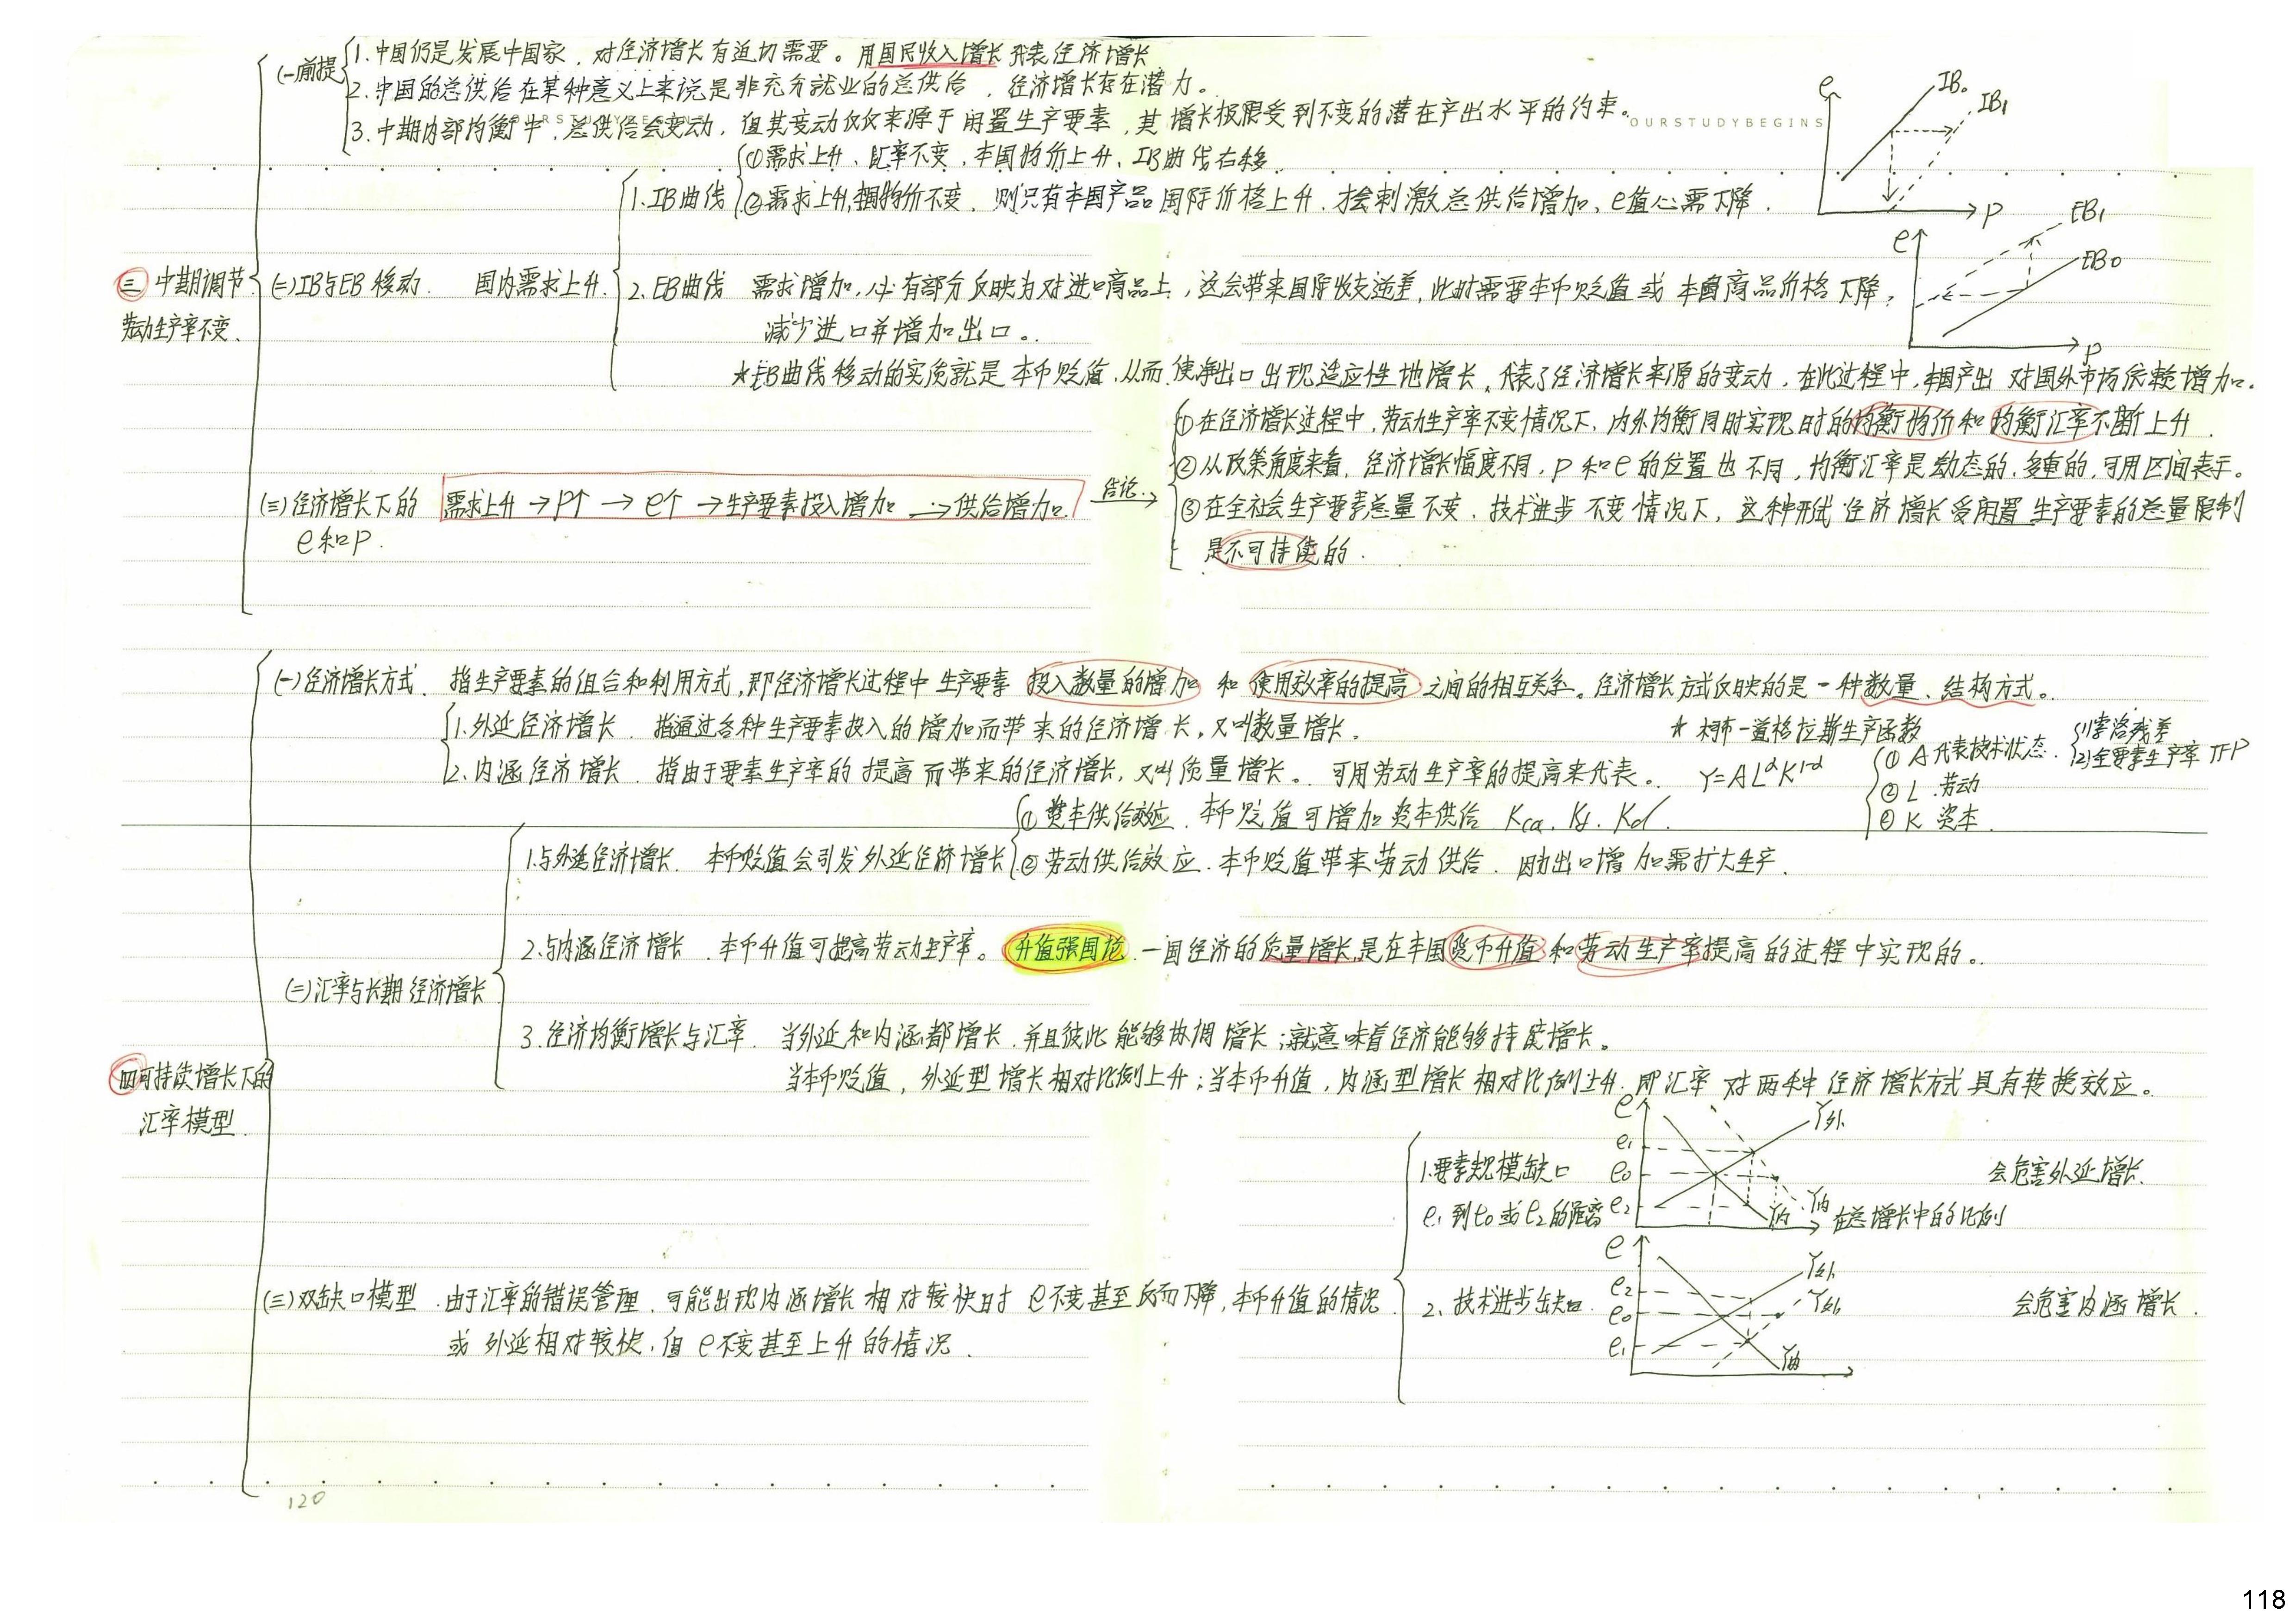 (一)前提
1.中国仍是发展中国家，对经济增长有迫切需要。用国民收入增长代表经济增长
2.中国的总供给在某种意义上来说是非充分就业的总供给，经济增长存在潜力。
3.中期内部均衡中，总供给会变动，但其变动仅仅来源于闲置生产要素，其增长极限受到不变的潜在产出水平的约束。
OURSTUDYBEGINS
e IB₀ IB₁ P
①需求上升、汇率不变、本国物价上升、IB曲线右移.
1.IB曲线 ②需求上升,本国物价不变，则只有本国产品国际价格上升，才会刺激总供给增加、e值必需下降.
e EB₁ EB₀ P
三 中期调节
劳动生产率不变.
(二)IB与EB移动. 国内需求上升.
2.EB曲线 需求增加,必有部分反映为对进口商品上，这会带来国际收支逆差,此时需要本币贬值或本国商品价格下降，
减少进口并增加出口。
★EB曲线移动的实质就是本币贬值,从而使净出口出现适应性地增长,代表了经济增长来源的变动，在此过程中,本国产出对国外市场依赖增加.
(三)经济增长下的
e和P.
需求上升→P↑→e↑→生产要素投入增加→供给增加.
结论
①在经济增长过程中,劳动生产率不变情况下、内外均衡同时实现时的均衡物价和均衡汇率不断上升.
②从政策角度来看，经济增长幅度不同，P和e的位置也不同，均衡汇率是动态的,多重的,可用区间表示。
③在全社会生产要素总量不变，技术进步不变情况下，这种形式经济增长受闲置生产要素的总量限制
是不可持续的.
四可持续增长下的
汇率模型
(一)经济增长方式. 指生产要素的组合和利用方式,即经济增长过程中生产要素投入数量的增加和使用效率的提高之间的相互关系。经济增长方式反映的是一种数量、结构方式。
1.外延经济增长. 指通过各种生产要素投入的增加而带来的经济增长,又叫数量增长.
2.内涵经济增长. 指由于要素生产率的提高而带来的经济增长,又叫质量增长。可用劳动生产率的提高来代表。
★ 柯布-道格拉斯生产函数
Y=ALᵅK¹⁻ᵅ
①A代表技术状态.
(1)索洛残差
(2)全要素生产率TFP
②L.劳动
③K 资本.
(二)汇率与长期经济增长
1.与外延经济增长. 本币贬值会引发外延经济增长
①资本供给效应. 本币贬值可增加资本供给 Kca. Kf. Kd.
②劳动供给效应. 本币贬值带来劳动供给. 因为出口增加需扩大生产.
2.与内涵经济增长. 本币升值可提高劳动生产率。升值强国论. 一国经济的质量增长是在本国货币升值和劳动生产率提高的过程中实现的。
3.经济均衡增长与汇率. 当外延和内涵都增长.并且彼此能够协调增长;就意味着经济能够持续增长。
当本币贬值，外延型增长相对比例上升;当本币升值，内涵型增长相对比例上升.即汇率对两种经济增长方式具有转换效应。
(三)双缺口模型.由于汇率的错误管理，可能出现内涵增长相对较快时e不变甚至反而下降,本币升值的情况
或外延相对较快,但e不变甚至上升的情况.
1.要素规模缺口
e₁到e₀或e₂的距离
e e₁ e₀ e₂ Y外 Y内 Y内 在总增长中的比例
会危害外延增长.
2、技术进步缺口.
e e₂ e₀ e₁ Y外 Y外 Y内
会危害内涵增长.
120
118